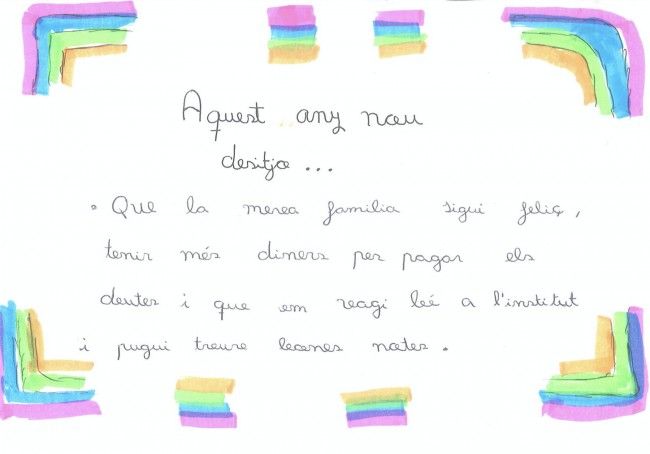 Aquest any nou
desitjo ...
• Que la meva familia sigui feliç,
tenir més diners per pagar els
deutes i que em vagi bé a l'institut
i pugui treure bones notes.